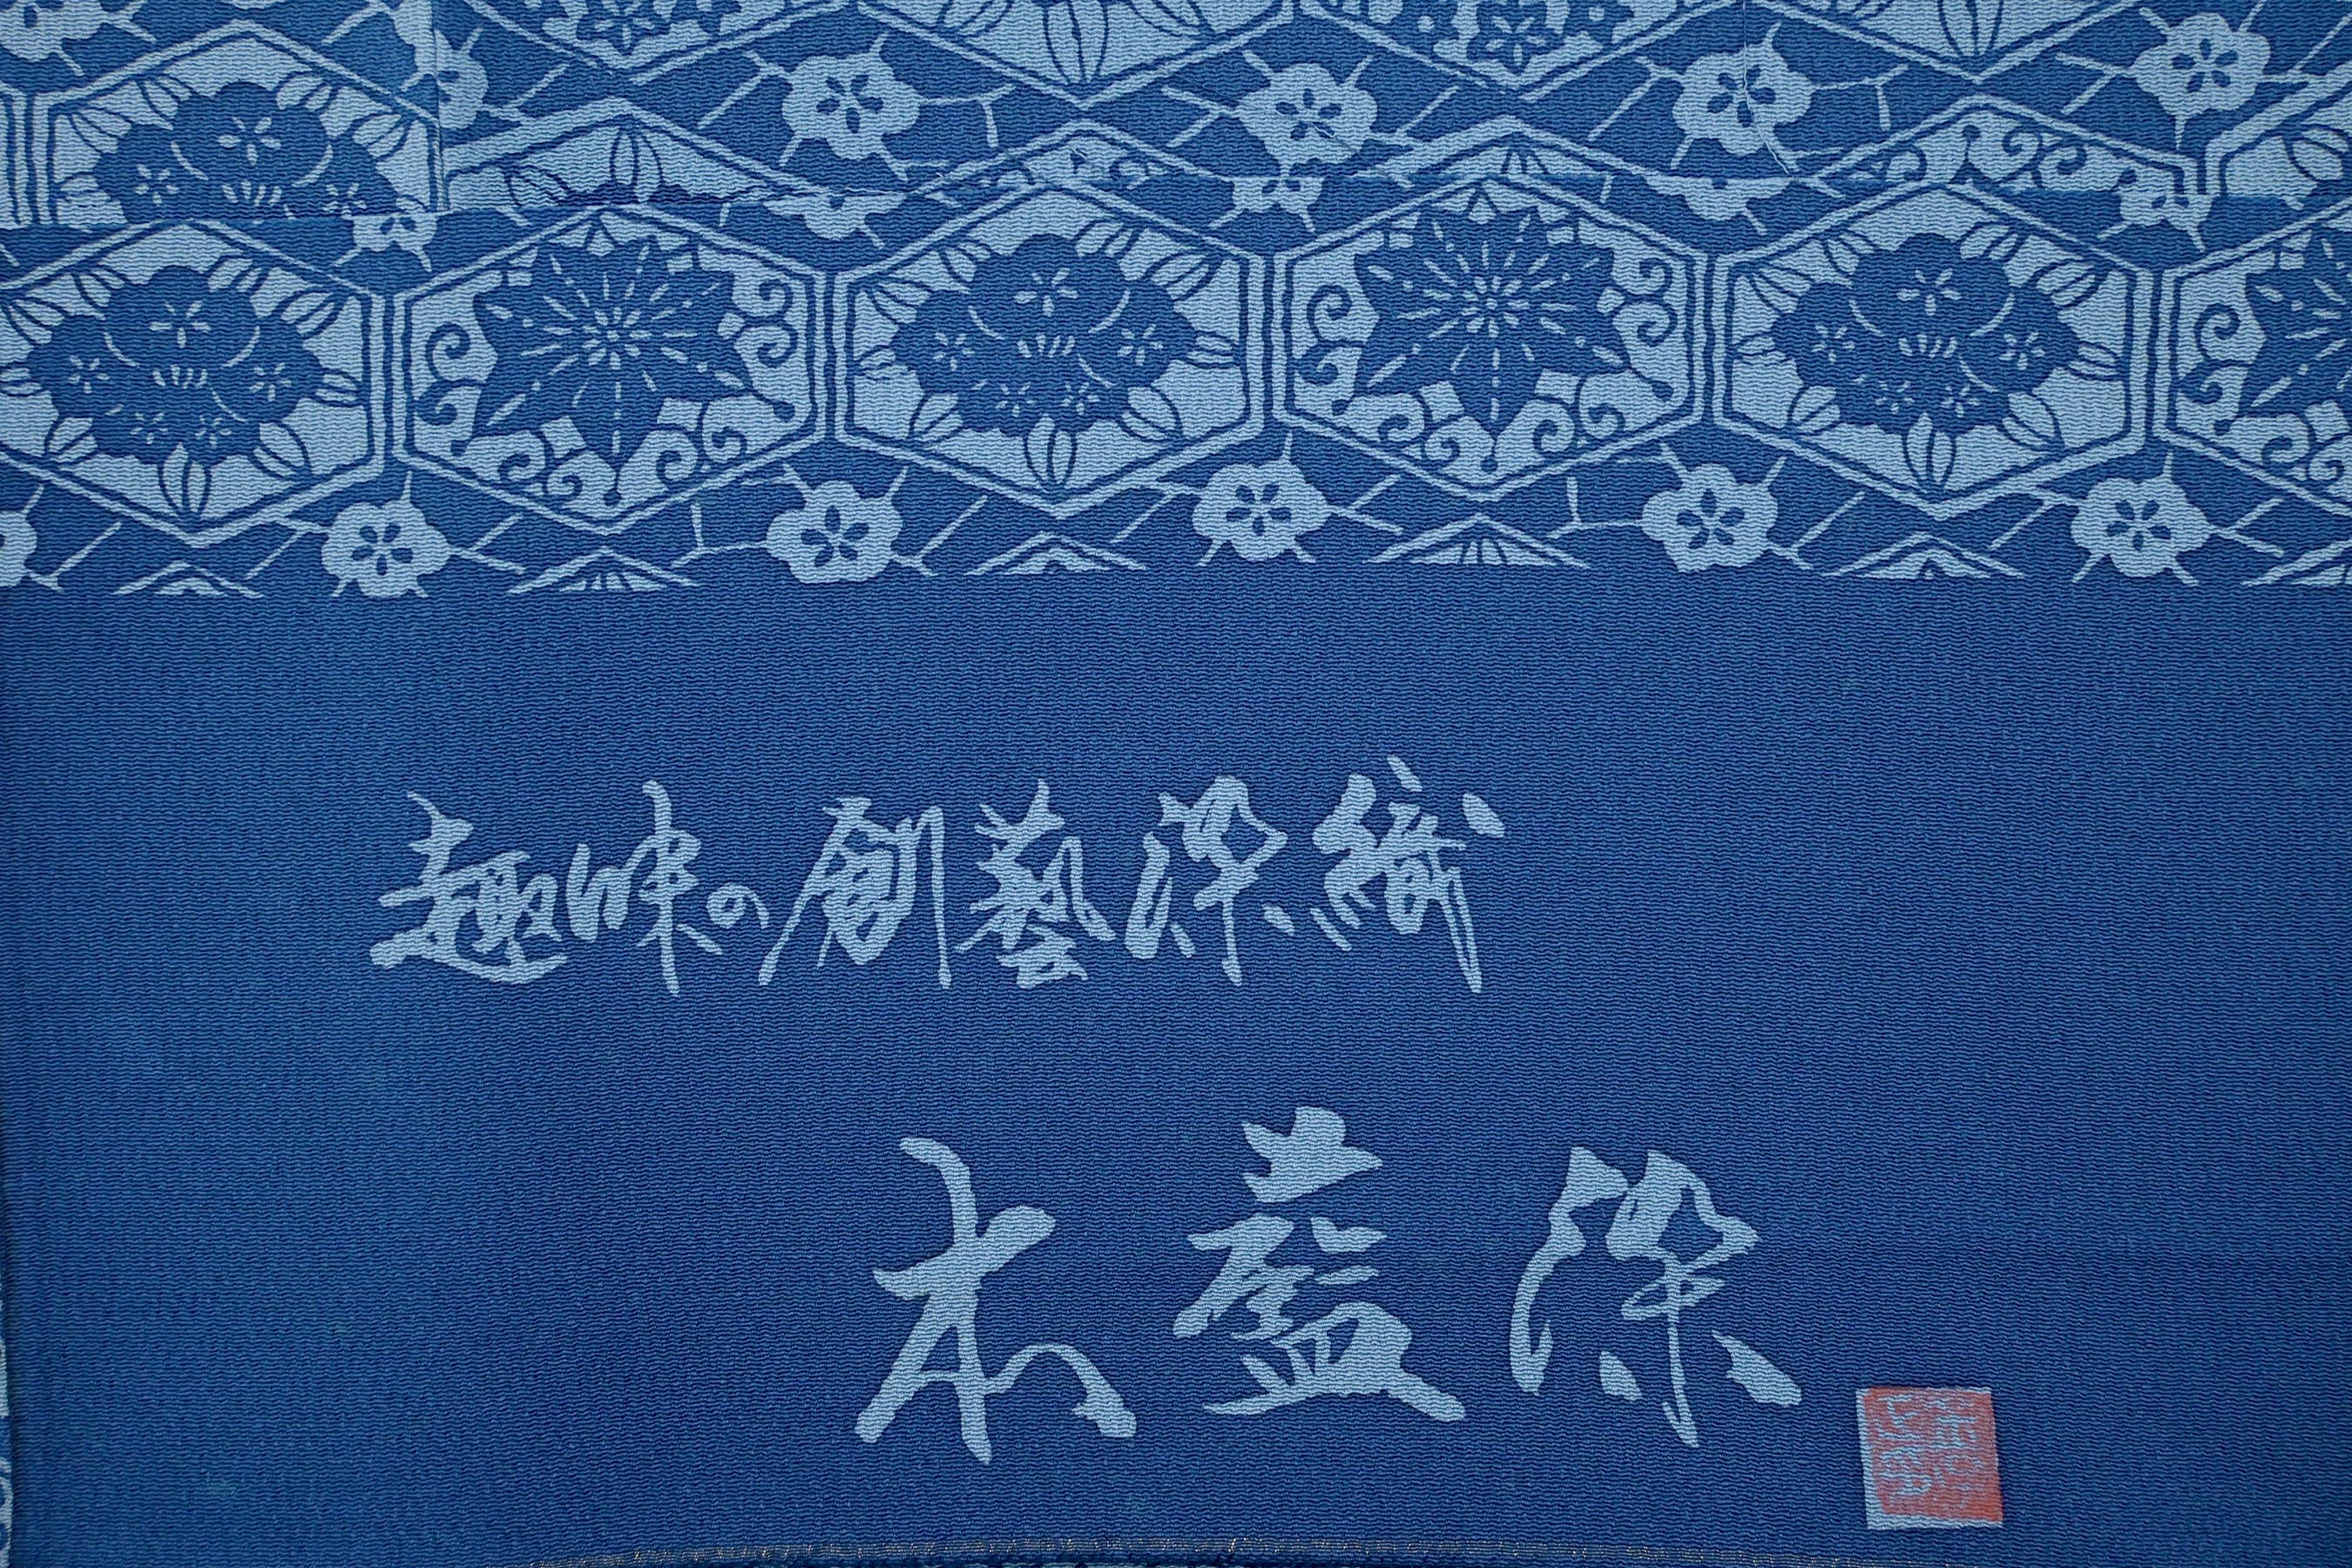 趣味の創藝染織
本藍染